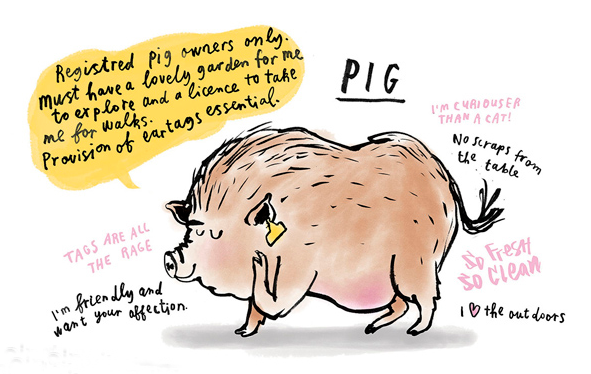 Registred Pig owners only.
Must have a lovely garden for me
to explore and a licence to take
me for walks.
Provision of eartags essential.
PIG
I'M CURIOUSER
THAN A CAT!
No scraps from
the table
TAGS ARE ALL
THE RAGE
So Fresh
So Clean
I'm friendly and
want your affection.
I ♥ the outdoors